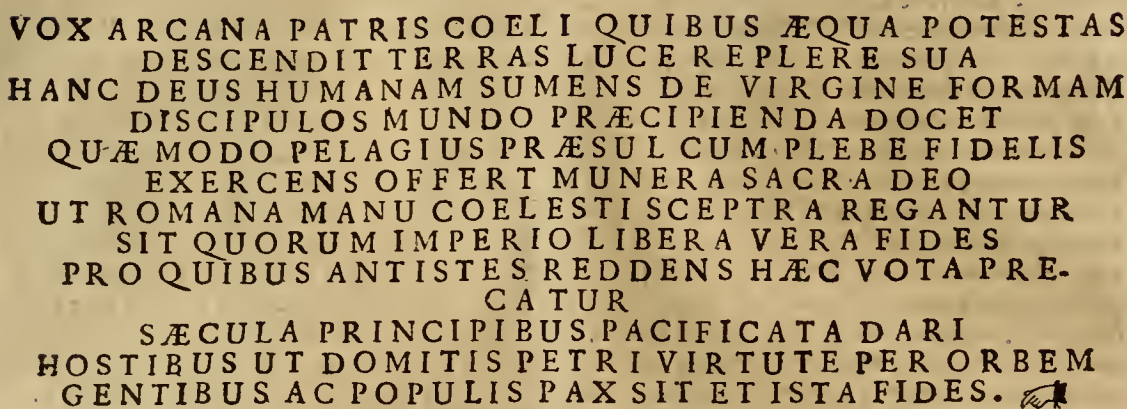 VOX ARCANA PATRIS COELI QUIBUS ÆQUA POTESTAS
DESCENDIT TERRAS LUCE REPLERE SUA
HANC DEUS HUMANAM SUMENS DE VIRGINE FORMAM
DISCIPULOS MUNDO PRÆCIPIENDA DOCET
QUÆ MODO PELAGIUS PRÆSUL CUM PLEBE FIDELIS
EXERCENS OFFERT MUNERA SACRA DEO
UT ROMANA MANU COELESTI SCEPTRA REGANTUR
SIT QUORUM IMPERIO LIBERA VERA FIDES
PRO QUIBUS ANTISTES REDDENS HÆC VOTA PRE-
CATUR
SÆCULA PRINCIPIBUS PACIFICATA DARI
HOSTIBUS UT DOMITIS PETRI VIRTUTE PER ORBEM
GENTIBUS AC POPULIS PAX SIT ET ISTA FIDES.